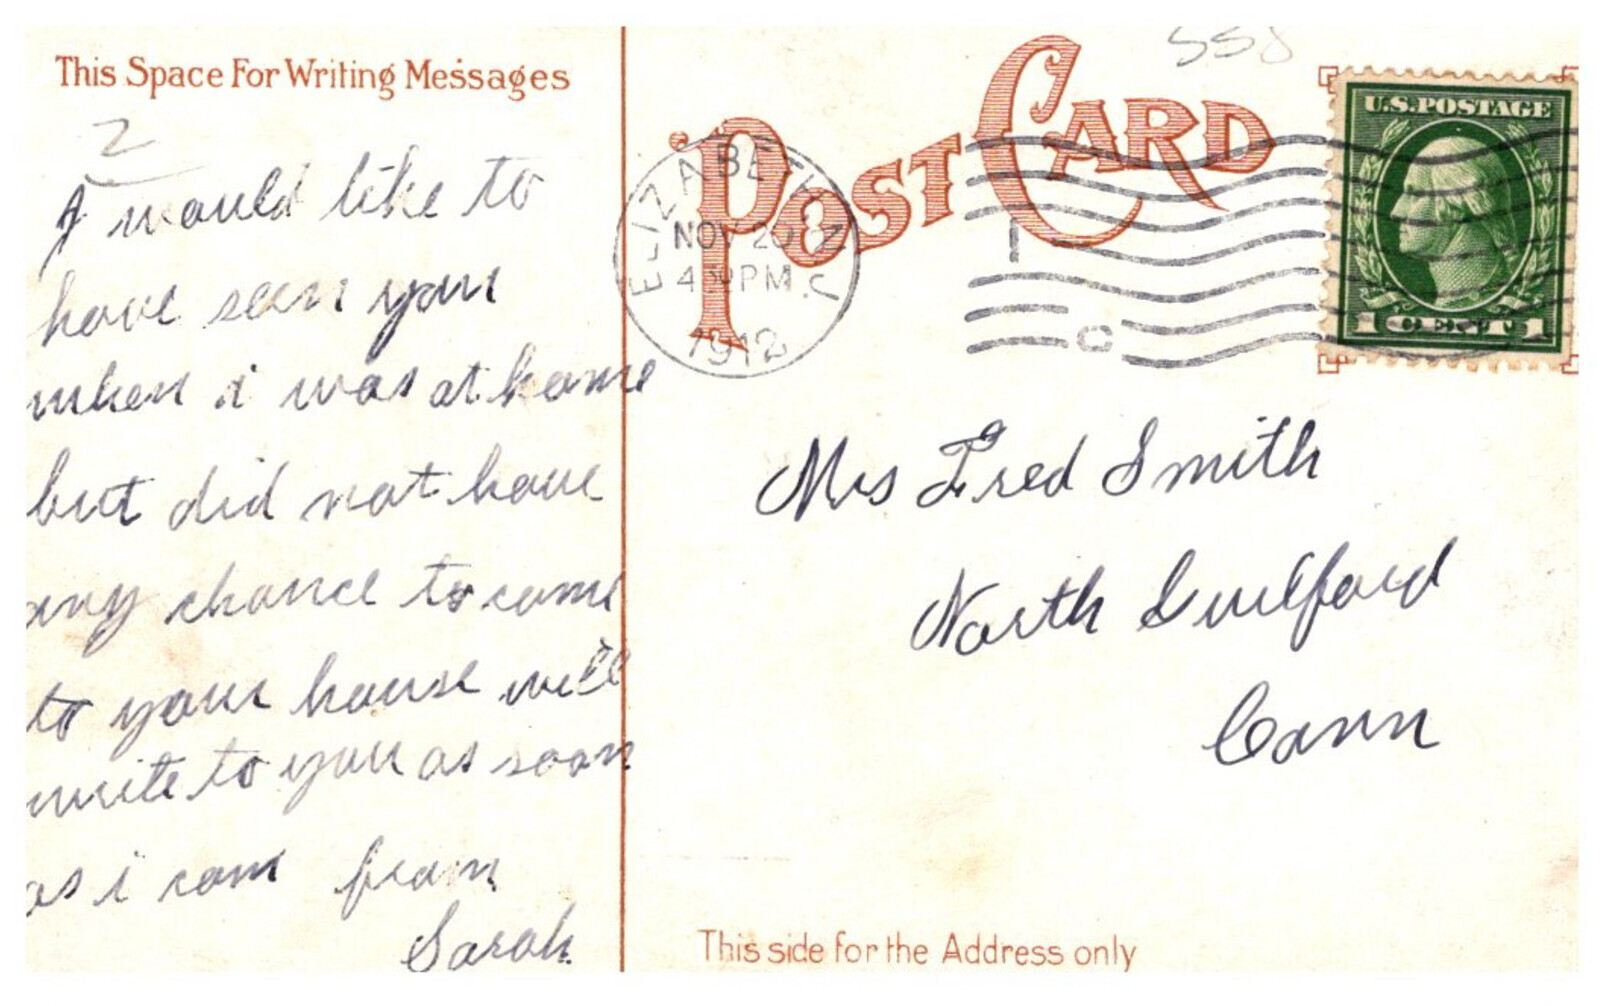 This Space For Writing Messages
2
I would like to
have seen you
when i was at home
but did not have
any chance to come
to your house will
write to you as soon
as i can from
Sarah.
558
POST CARD
ELIZABETH, N.J.
NOV 20
4 PM
1912
C
U.S. POSTAGE
1 CENT 1
Mrs Fred Smith
North Guilford
Conn
This side for the Address only